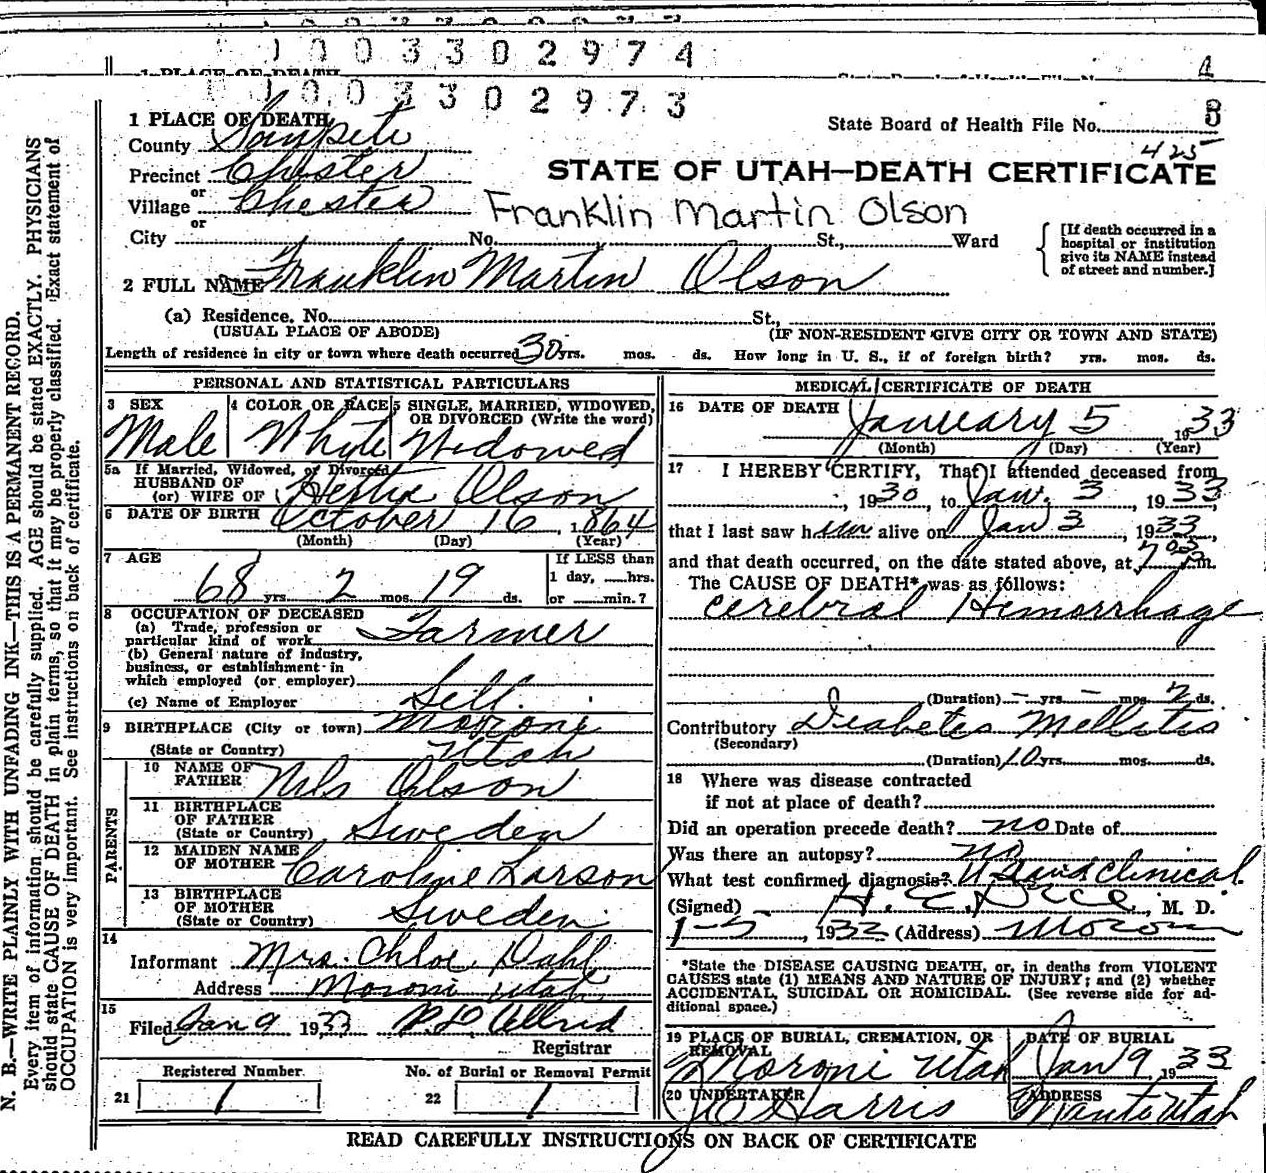 0003302974
1 PLACE OF DEATH
State Board of Health File No. 4
0003302973
1 PLACE OF DEATH
State Board of Health File No. 3
County Sanpete
425
Precinct Chester
STATE OF UTAH—DEATH CERTIFICATE
or
Village Chester
Franklin Martin Olson
or
City No. St., Ward
[If death occurred in a
hospital or institution
give its NAME instead
of street and number.]
2 FULL NAME Franklin Martin Olson
(a) Residence. No. St.,
(USUAL PLACE OF ABODE) (IF NON-RESIDENT GIVE CITY OR TOWN AND STATE)
Length of residence in city or town where death occurred 30 yrs. mos. ds. How long in U. S., if of foreign birth? yrs. mos. ds.
PERSONAL AND STATISTICAL PARTICULARS
3 SEX
Male
4 COLOR OR RACE
Whyte
5 SINGLE, MARRIED, WIDOWED,
OR DIVORCED (Write the word)
Widowed
5a If Married, Widowed, or Divorced
HUSBAND OF
(or) WIFE OF Olson
6 DATE OF BIRTH October 16, 1864
(Month) (Day) (Year)
7 AGE
68 yrs 2 mos. 19 ds.
If LESS than
1 day, hrs.
or min.?
8 OCCUPATION OF DECEASED
(a) Trade, profession or
particular kind of work Farmer
(b) General nature of industry,
business, or establishment in
which employed (or employer)
(c) Name of Employer Self.
9 BIRTHPLACE (City or town) Moroni
(State or Country) Utah
PARENTS
10 NAME OF
FATHER Nils Olson
11 BIRTHPLACE
OF FATHER
(State or Country) Sweden
12 MAIDEN NAME
OF MOTHER Caroline Larson
13 BIRTHPLACE
OF MOTHER
(State or Country) Sweden
14
Informant Mrs. Chloe Dahl
Address Moroni Utah
15
Filed Jan 9 1933 Allred
Registrar
Registered Number
21 1
No. of Burial or Removal Permit
22 1
MEDICAL CERTIFICATE OF DEATH
16 DATE OF DEATH
January 5 1933
(Month) (Day) (Year)
17 I HEREBY CERTIFY, That I attended deceased from
, 1930, to Jan. 3, 1933,
that I last saw him alive on Jan 3, 1933,
and that death occurred, on the date stated above, at m.
The CAUSE OF DEATH* was as follows:
Cerebral Hemorrhage
(Duration) – yrs. – mos 2 ds.
Contributory Deabetes Mellitis
(Secondary)
(Duration) 10 yrs. mos. ds.
18 Where was disease contracted
if not at place of death?
Did an operation precede death? no Date of
Was there an autopsy? no
What test confirmed diagnosis? and Clinical
(Signed) H. E. , M. D.
1-5, 1933 (Address) Moroni
*State the DISEASE CAUSING DEATH, or, in deaths from VIOLENT
CAUSES state (1) MEANS AND NATURE OF INJURY; and (2) whether
ACCIDENTAL, SUICIDAL OR HOMICIDAL. (See reverse side for ad-
ditional space.)
19 PLACE OF BURIAL, CREMATION, OR
REMOVAL
Moroni Utah
DATE OF BURIAL
Jan 9, 1933
20 UNDERTAKER
Harris
ADDRESS
Manti Utah
READ CAREFULLY INSTRUCTIONS ON BACK OF CERTIFICATE
N. B.—WRITE PLAINLY WITH UNFADING INK—THIS IS A PERMANENT RECORD.
Every item of information should be carefully supplied. AGE should be stated EXACTLY. PHYSICIANS
should state CAUSE OF DEATH in plain terms, so that it may be properly classified. Exact statement of
OCCUPATION is very important. See instructions on back of certificate.